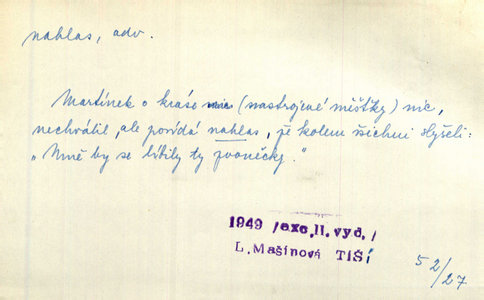 nahlas, adv.
Martínek o kráse nic (nastrojené měšťky) nic,
nechválil, ale povídá nahlas, že kolem všichni slyšeli:
„Mně by se líbily ty zvonečky."
1949 /exc.II.vyd./
L.Mašínová Tiší
52/27